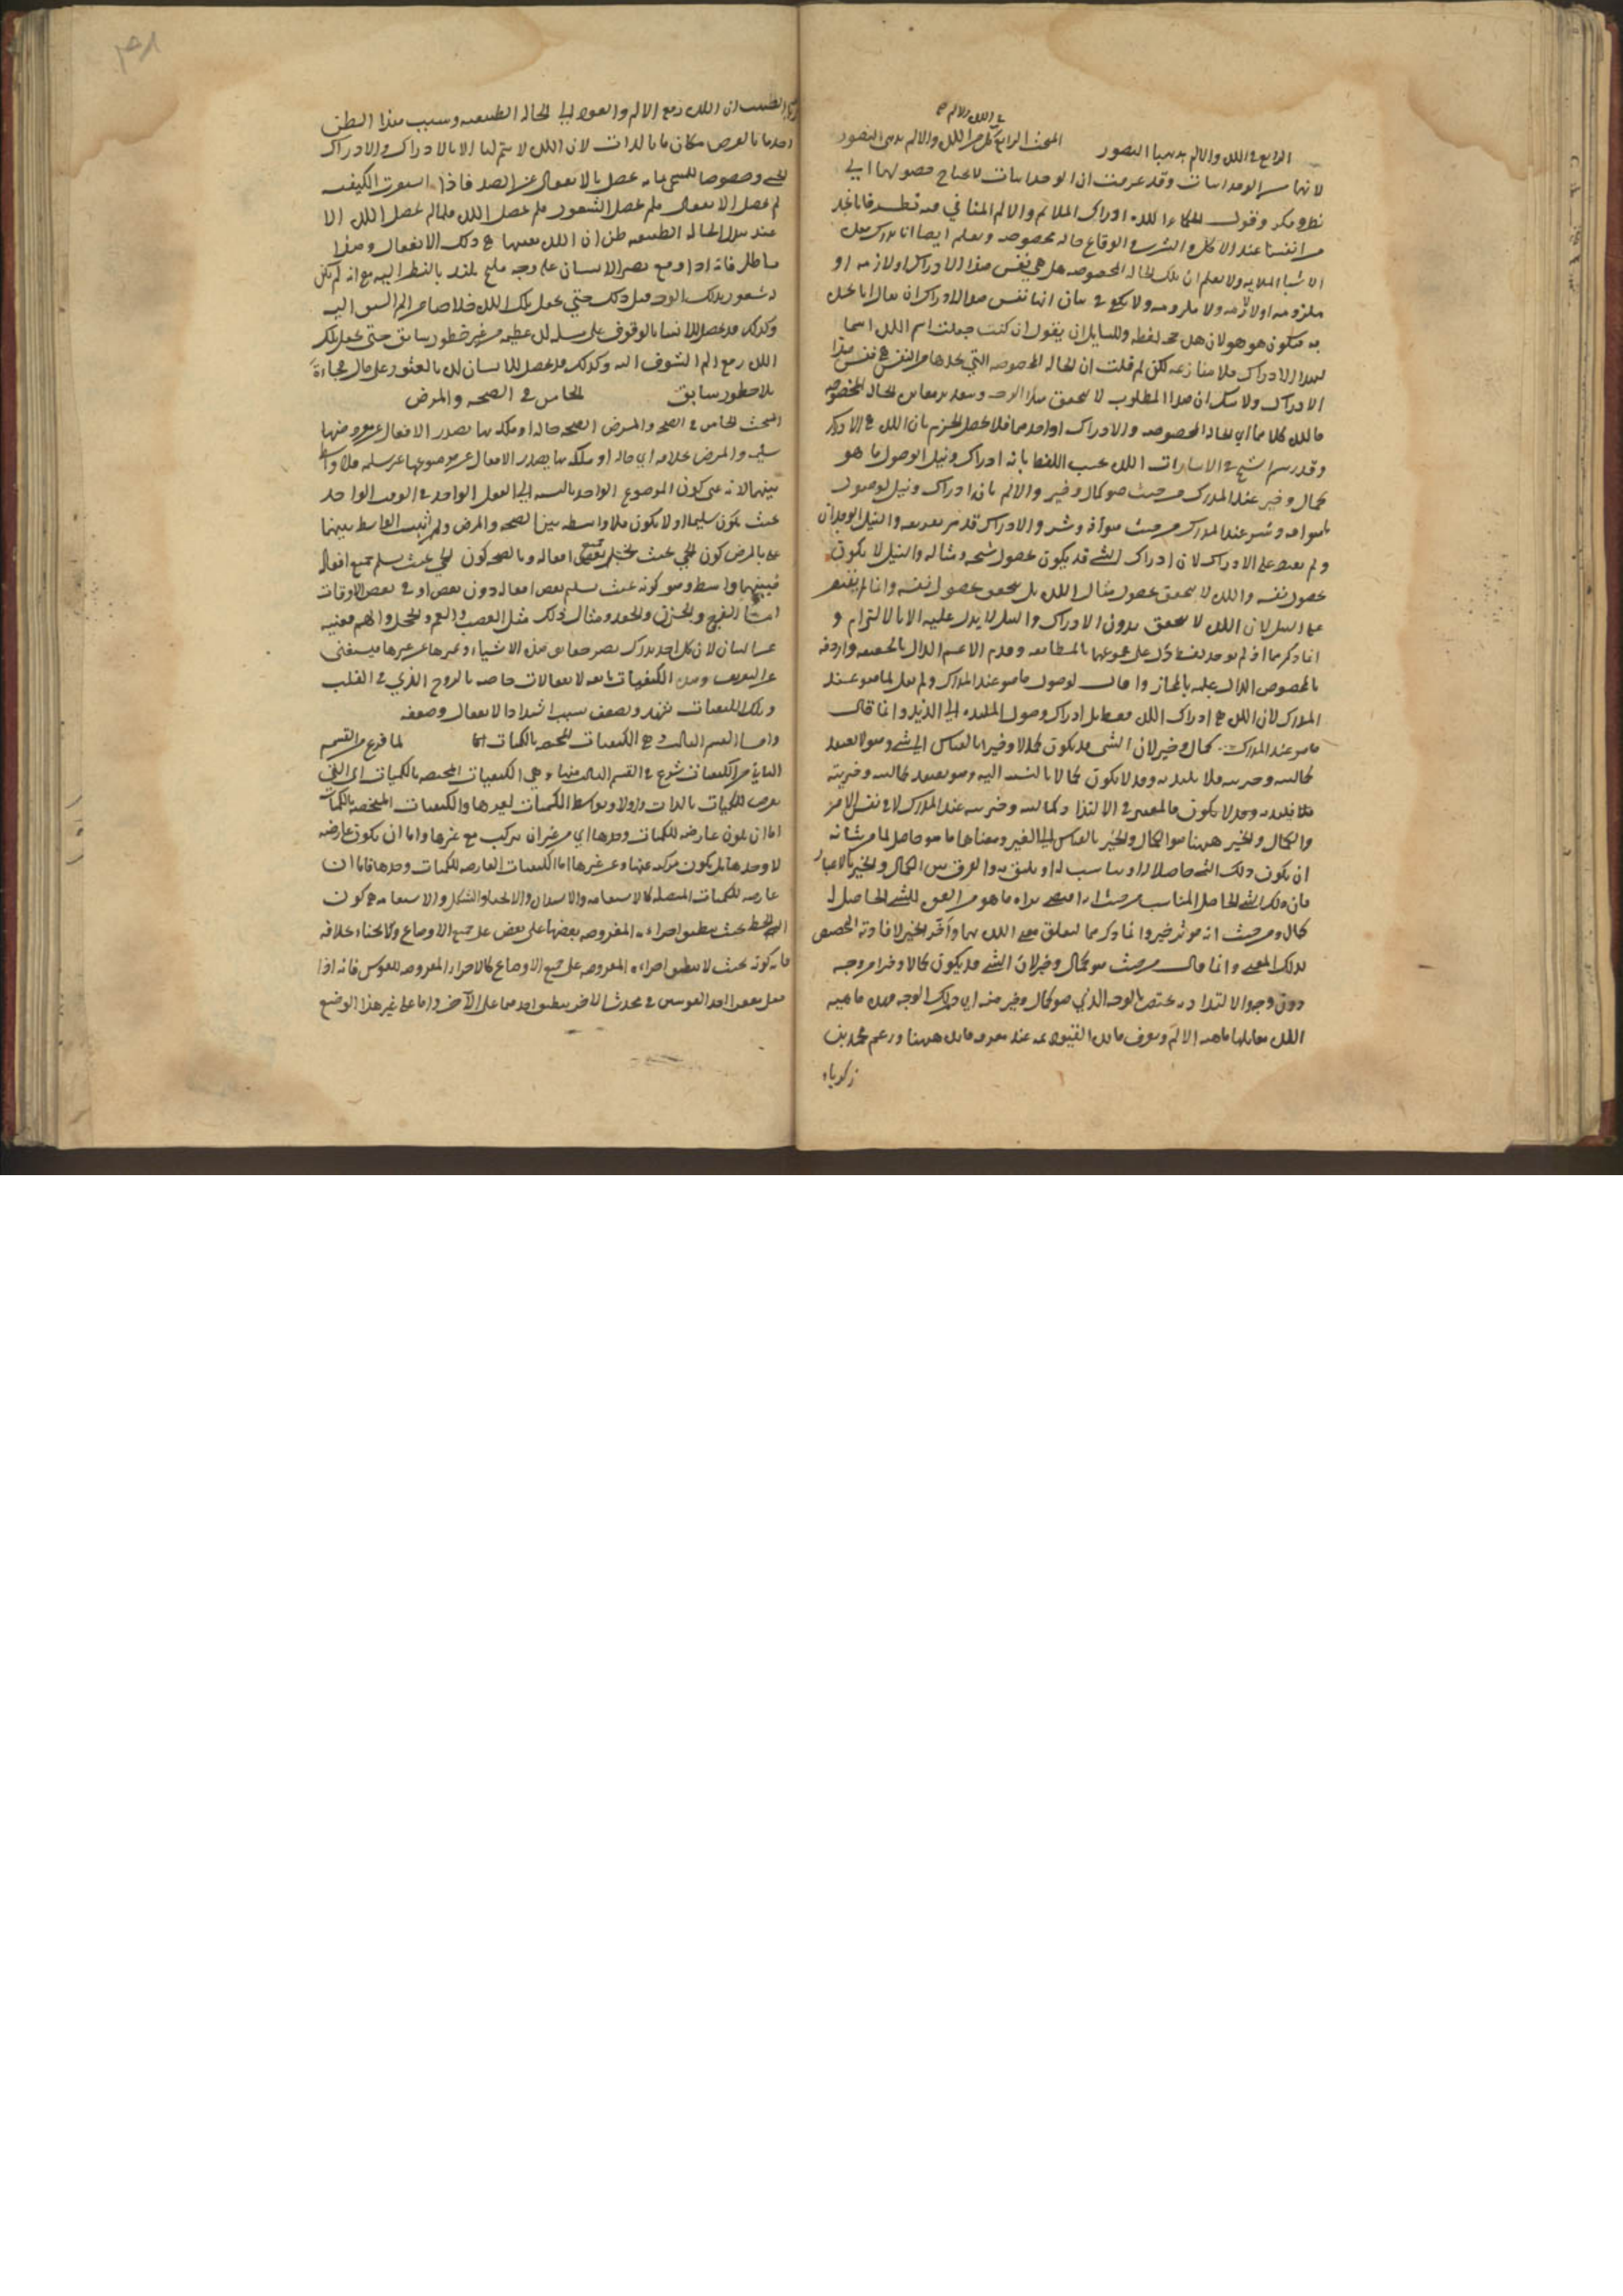 في اللذة والالم
الرابع في اللذة والالم بديهيا التصور المبحث الرابع كل من اللذة والالم بديهي التصور
لانهما من الوجدانيات وقد عرفت ان الوجدانيات لا يحتاج حصولها الى
نظر وفكر وقول الحكماء اللذة ادراك الملائم والالم المنافي فيه نظر فانا نجد
من انفسنا عند الاكل والشرب والوقاع حالة مخصوصة ونعلم ايضا انا ندرك
الاشياء الملائمة ولا نعلم ان تلك الحالة المخصوصة هل هي نفس هذا الادراك او لازمه او
ملزومه او لا لازمه ولا ملزومه ولا يكفي في بيان انها نفس هذا الادراك ان يقال انا
فيكون هو هو لان هل لفظه وللسائل ان يقول ان كنت جعلت اسم اللذة اسما
لهذا الادراك فلا منازعة لكن لم قلت ان الحالة المخصوصة التي نجدها من النفس هي نفس هذا
الادراك ولا شك ان هذا المطلوب لا يتحقق بهذا الوجه
والادراك فلا يحصل الجزم بان اللذة هي الادراك
وقد رسم الشيخ في الاشارات اللذة بحسب اللفظ بانه ادراك ونيل لوصول ما هو
كمال وخير عند المدرك من حيث هو كمال وخير والالم بانه ادراك ونيل لوصول
ما هو آفة وشر عند المدرك من حيث هو آفة وشر والادراك قد مر تعريفه والنيل الوجدان
ولم يقتصر على الادراك لان ادراك الشيء قد يكون بحصول شبحه ومثاله والنيل لا يكون
بحصول نفسه واللذة لا يتحقق بحصول مثال اللذة بل يتحقق بحصول نفسه وانما لم يقتصر
على النيل لان اللذة لا يتحقق بدون الادراك والنيل لا يدل عليه الا بالالتزام و
انما ذكرهما اذ لم يوجد لفظ دل على مجموعهما بالمطابقة وقدم الاعم الدال بالحقيقة واردفه
بالمخصوص الدال عليه بالمجاز وانما قال لوصول ما هو عند المدرك ولم يقل لما هو عند
المدرك لان اللذة هي ادراك وصول الملذ الى اللذيذ وانما قال
ما هو عند المدرك كمال وخير لان الشيء قد يكون كمالا وخيرا بالقياس الى شيء وهو لا يعتقد
كماليته وخيريته فلا يلتذ به وقد لا يكون كمالا بالنسبة اليه وهو يعتقد كماليته وخيريته
فيلتذ به فالمعتبر في الالتذاذ كماليته وخيريته عند المدرك لا في نفس الامر
والكمال والخير ههنا هو الكمال والخير بالقياس الى الغير ومعناهما ما هو حاصل لما من شانه
ان يكون ذلك الشيء حاصلا له او يناسب له او يليق به والفرق بين الكمال والخير بالاعتبار
كمال ومن حيث انه مؤثر خير وانما ذكرهما لتعلق معنى اللذة بهما واخر الخير لافادته التخصيص
لذلك المعنى وانما قال من حيث هو كمال وخير لان الشيء قد يكون كمالا وخيرا من وجه
دون وجه والالتذاذ به يختص بالوجه الذي هو كمال وخير منه اي ذلك الوجه فهذه ماهية
اللذة ويقابلها ماهية الالم ويعرف فائدة القيود عند معرفة فائدة ههنا وزعم محمد بن
زكرياء
الطبيب ان اللذة دفع الالم والعود الى الحالة الطبيعية وسبب هذا الظن
اخذ ما بالعرض مكان ما بالذات لان اللذة لا يتم لنا الا بالادراك والادراك
الحسي وخصوصا اللمسي انما يحصل بالانفعال عن الضد فاذا استقرت الكيفية
لم يحصل الانفعال فلم يحصل الشعور فلم يحصل اللذة فلما لم يحصل اللذة الا
عند تبدل الحالة الطبيعية ظن ان اللذة نفسها هي ذلك الانفعال وهذا
باطل فانه اذا وقع بصر الانسان على وجه مليح يلتذ بالنظر اليه مع انه لم يكن
له شعور بذلك الوجه قبل ذلك حتى يجعل تلك اللذة خلاصا من الم الشوق اليه
وكذلك قد يحصل للانسان بالوقوف على مسئلة لذة عظيمة من غير خطور سابق حتى يجعل تلك
اللذة دفع الم الشوق اليه وكذلك قد يحصل للانسان لذة بالعثور على مال فجاءة
بلا خطور سابق الخامس في الصحة والمرض
المبحث الخامس في الصحة والمرض الصحة حالة او ملكة بها يصدر الافعال عن موضوعها
سليمة والمرض بخلافه اي حالة او ملكة بها يصدر الافعال عن موضوعها غير سليمة فلا واسطة
بينهما لانه كون الموضوع الواحد بالنسبة الى الفعل الواحد في الوقت الواحد
بحيث يكون سليما او لا يكون فلا واسطة بين الصحة والمرض ولم اثبت الواسطة بينهما
عنى بالمرض كون الحي بحيث يختل جميع افعاله وبالصحة كون الحي بحيث يسلم جميع افعاله
فبينهما واسطة وهو كونه بحيث يسلم بعض افعاله دون بعض او في بعض الاوقات
اما الفرح والحزن والحقد وامثال ذلك مثل الغضب والغم والخجل والهم فغنية
عن البيان لان كل احد يدرك بالضرورة حقائق هذه الاشياء ويميزها عن غيرها فيستغنى
عن التعريف وهذه الكيفيات تابعة لانفعالات خاصة بالروح الذي في القلب
وتلك الكيفيات تشتد وتضعف بسبب اشتداد الانفعال وضعفه
واما القسم الثالث وهي الكيفيات المختصة بالكميات لما فرغ من القسم
الثاني من الكيفيات شرع في القسم الثالث منها وهي الكيفيات المختصة بالكميات اي التي
يعرض للكميات بالذات واولا وبواسطة الكميات لغيرها والكيفيات المختصة بالكميات
اما ان يكون عارضة للكميات وحدها اي من غير ان يتركب مع غيرها واما ان يكون عارضة
لا وحدها بل يكون مركبة عنها وعن غيرها اما الكيفيات العارضة للكميات وحدها فاما ان
عارضة للكميات المتصلة كالاستقامة والاستدارة والانحناء والشكل والاستقامة هي كون
الخط بحيث ينطبق اجزاءه المفروضة بعضها على بعض على جميع الاوضاع والانحناء بخلافه
فانه كونه بحيث لا ينطبق اجزاءه المفروضة على جميع الاوضاع كالاجزاء المفروضة للقوس فانه اذا
جعل مقعر احد القوسين في محدب الآخر ينطبق احدهما على الآخر واما على غير هذا الوضع